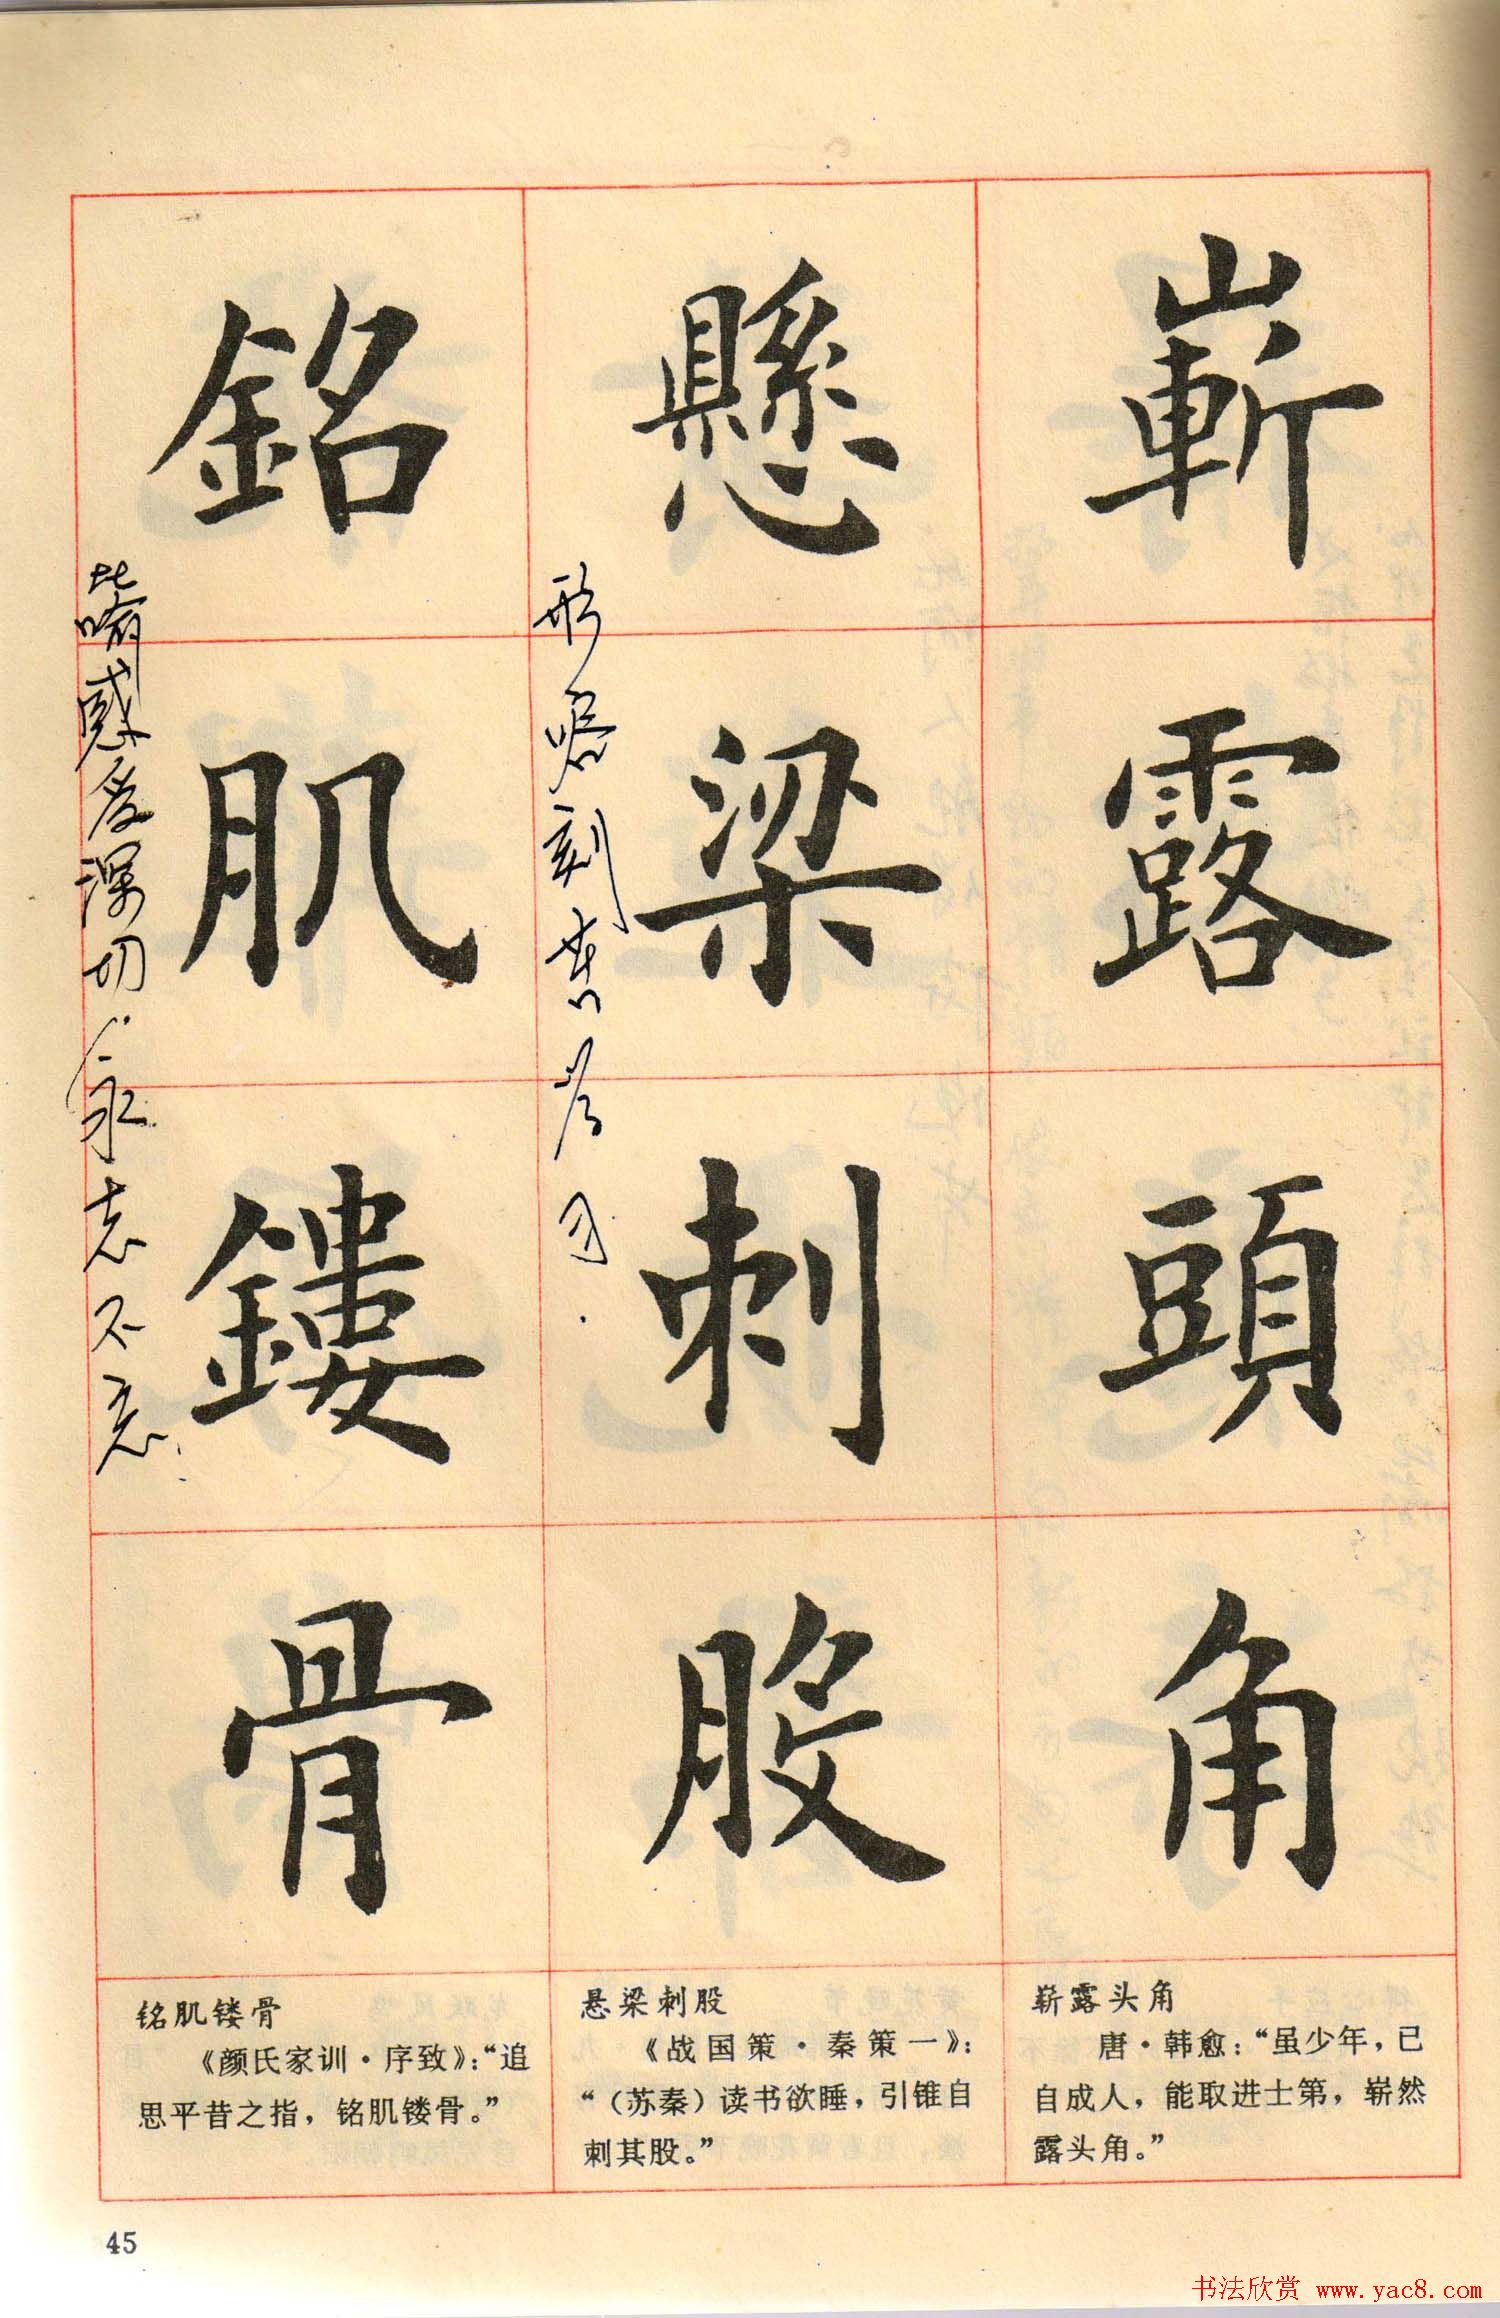 嶄露頭角
懸梁刺股
形容刻苦学习.
銘肌鏤骨
比喻感受深切.永志不忘.
崭露头角
唐·韩愈：“虽少年，已
自成人，能取进士第，崭然
露头角。”
悬梁刺股
《战国策·秦策一》：
“（苏秦）读书欲睡，引锥自
刺其股。”
铭肌镂骨
《颜氏家训·序致》：“追
思平昔之指，铭肌镂骨。”
45
书法欣赏 www.yac8.com